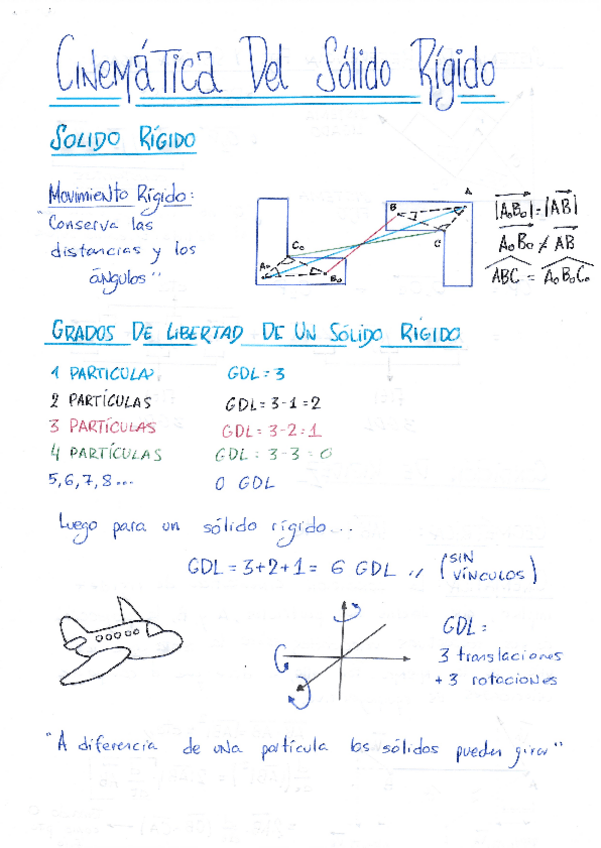 CINEMÁTICA DEL SÓLIDO RÍGIDO
SOLIDO RÍGIDO
MOVIMIENTO RÍGIDO:
"Conserva las
distancias y los
ángulos"
A
B
C
C₀
A₀
B₀
|A₀B₀| = |AB|
A₀B₀ ≠ AB
ABC = A₀B₀C₀
GRADOS DE LIBERTAD DE UN SÓLIDO RÍGIDO
1 PARTICULA GDL = 3
2 PARTÍCULAS GDL = 3-1 = 2
3 PARTÍCULAS GDL = 3-2 = 1
4 PARTÍCULAS GDL = 3-3 = 0
5,6,7,8... 0 GDL
Luego para un sólido rígido...
GDL = 3+2+1 = 6 GDL // (SIN VÍNCULOS)
GDL =
3 translaciones
+ 3 rotaciones
"A diferencia de una partícula los sólidos pueden girar"